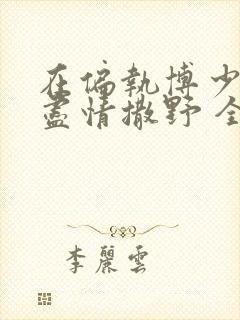 在偏執博少
盡情撒野 全
李麗雲